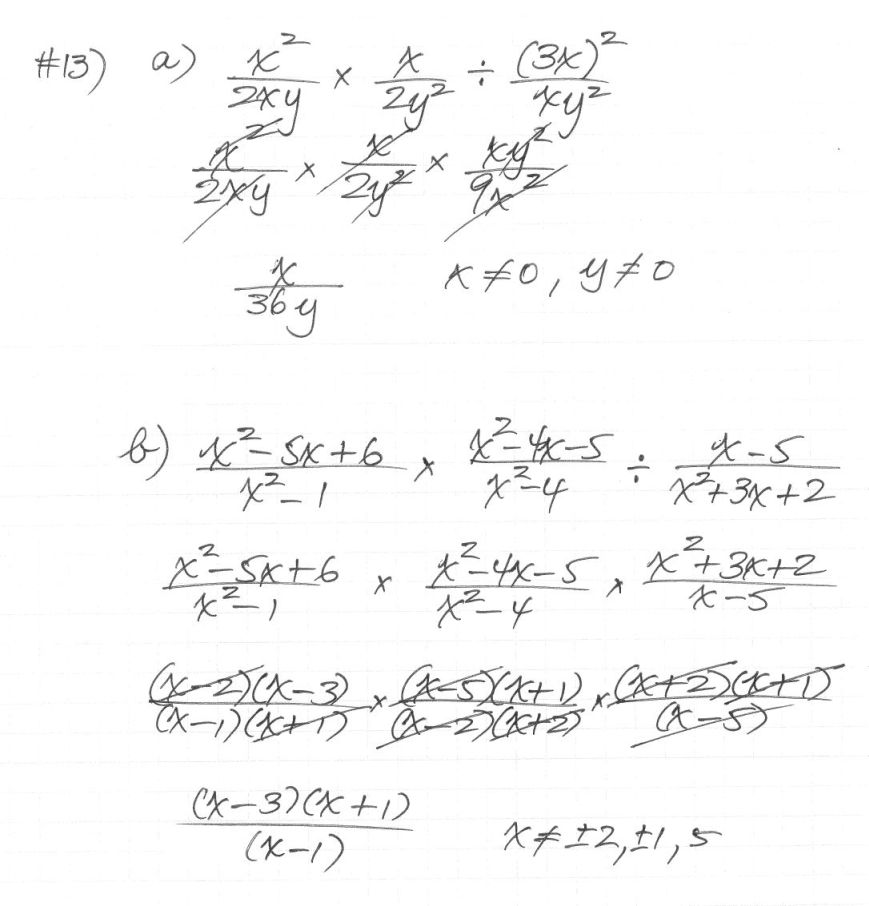 #13) a) x²/2xy × x/2y² ÷ (3x)²/xy²
x²/2xy × x/2y² × xy²/9x²
x/36y x≠0, y≠0
b) x²-5x+6/x²-1 × x²-4x-5/x²-4 ÷ x-5/x²+3x+2
x²-5x+6/x²-1 × x²-4x-5/x²-4 × x²+3x+2/x-5
(x-2)(x-3)/(x-1)(x+1) × (x-5)(x+1)/(x-2)(x+2) × (x+2)(x+1)/(x-5)
(x-3)(x+1)/(x-1) x≠±2,±1,5